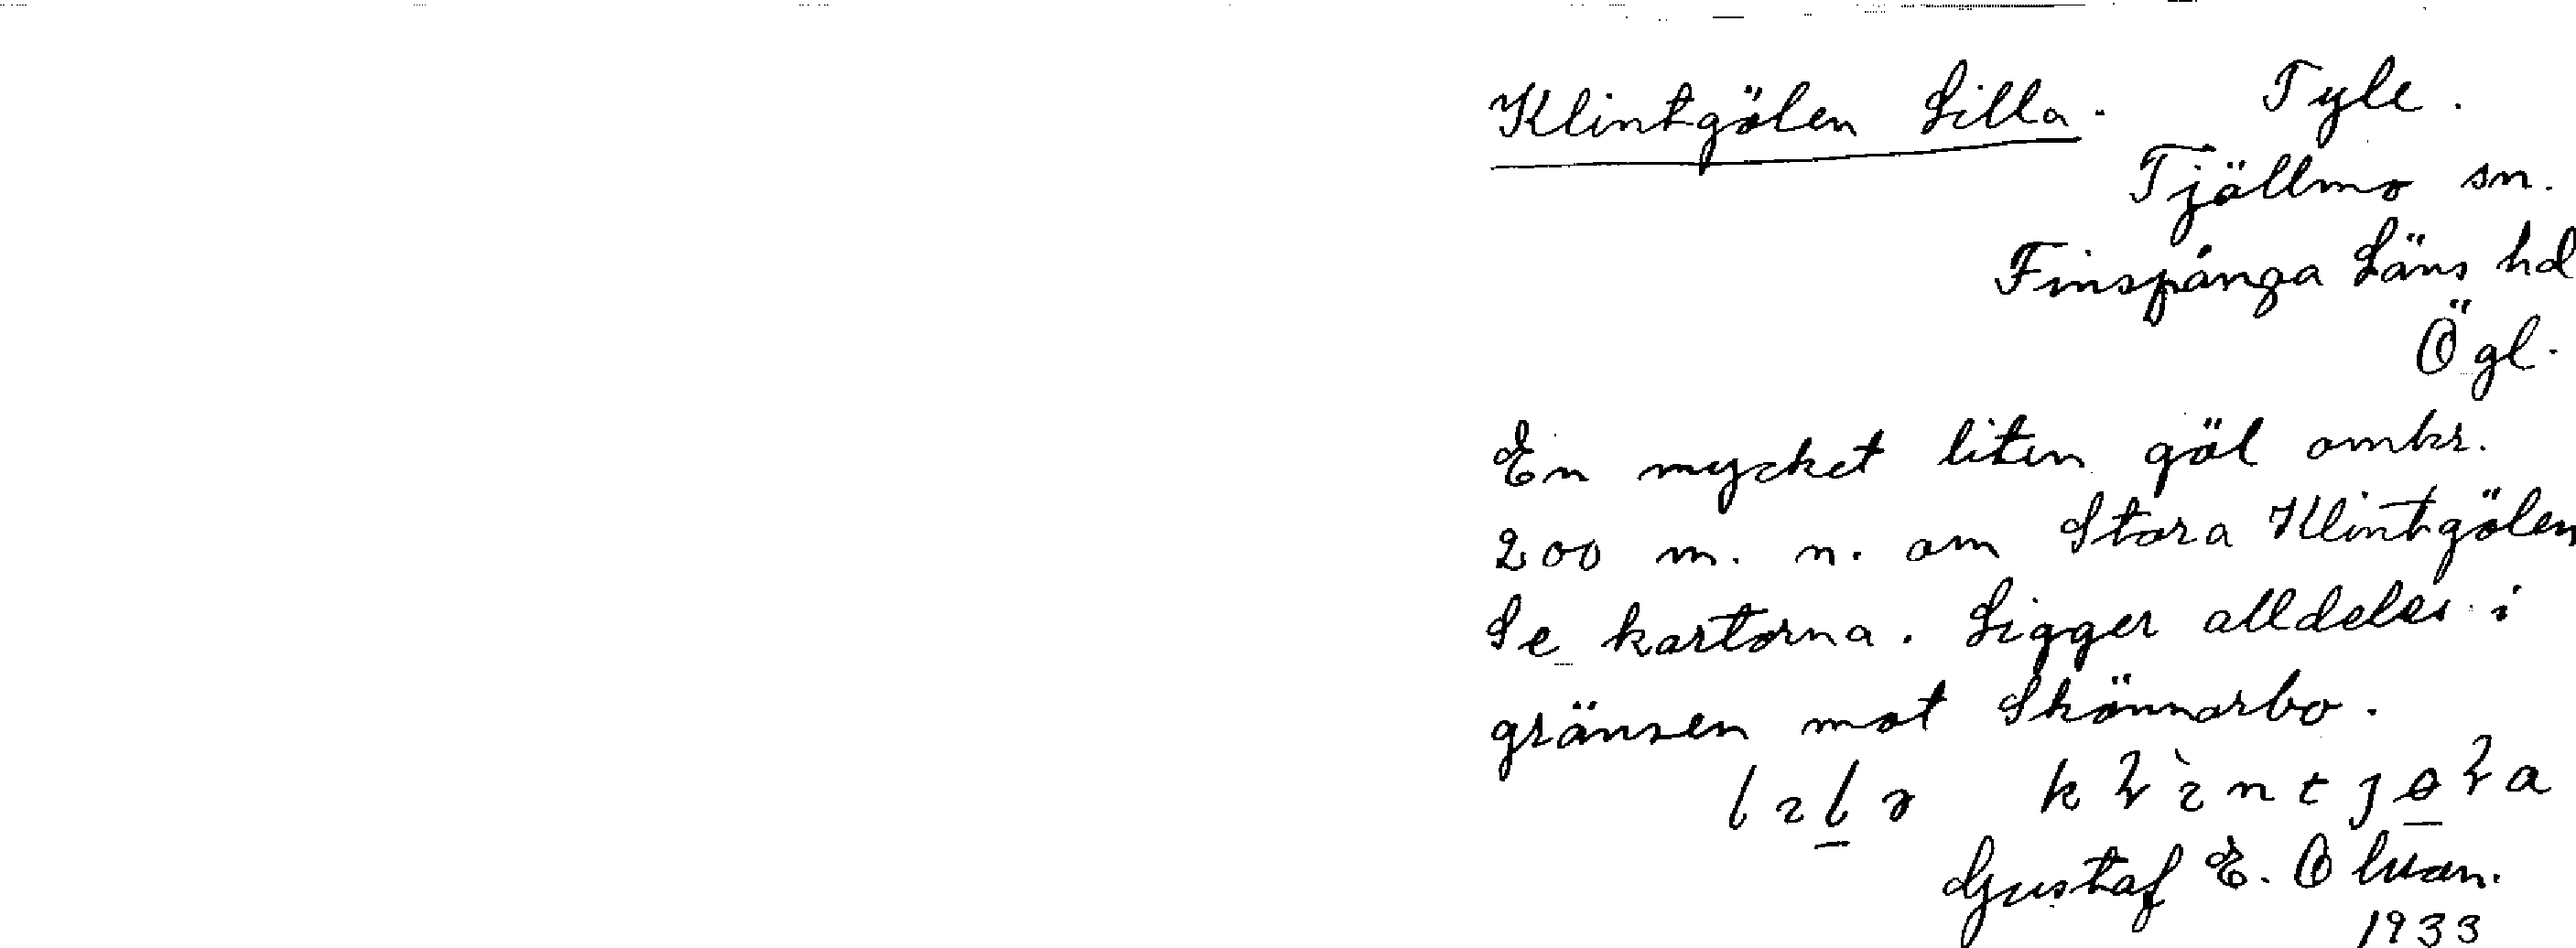 Klintgölen Lilla. Tyle.
Tjällmo sn.
Finspånga Läns hd
Ögl.
En mycket liten göl omkr.
200 m. n. om Stora Klintgölen
Se kartorna. Ligger alldeles i
gränsen mot Skönnarbo.
Gustaf E. Olsson.
1933